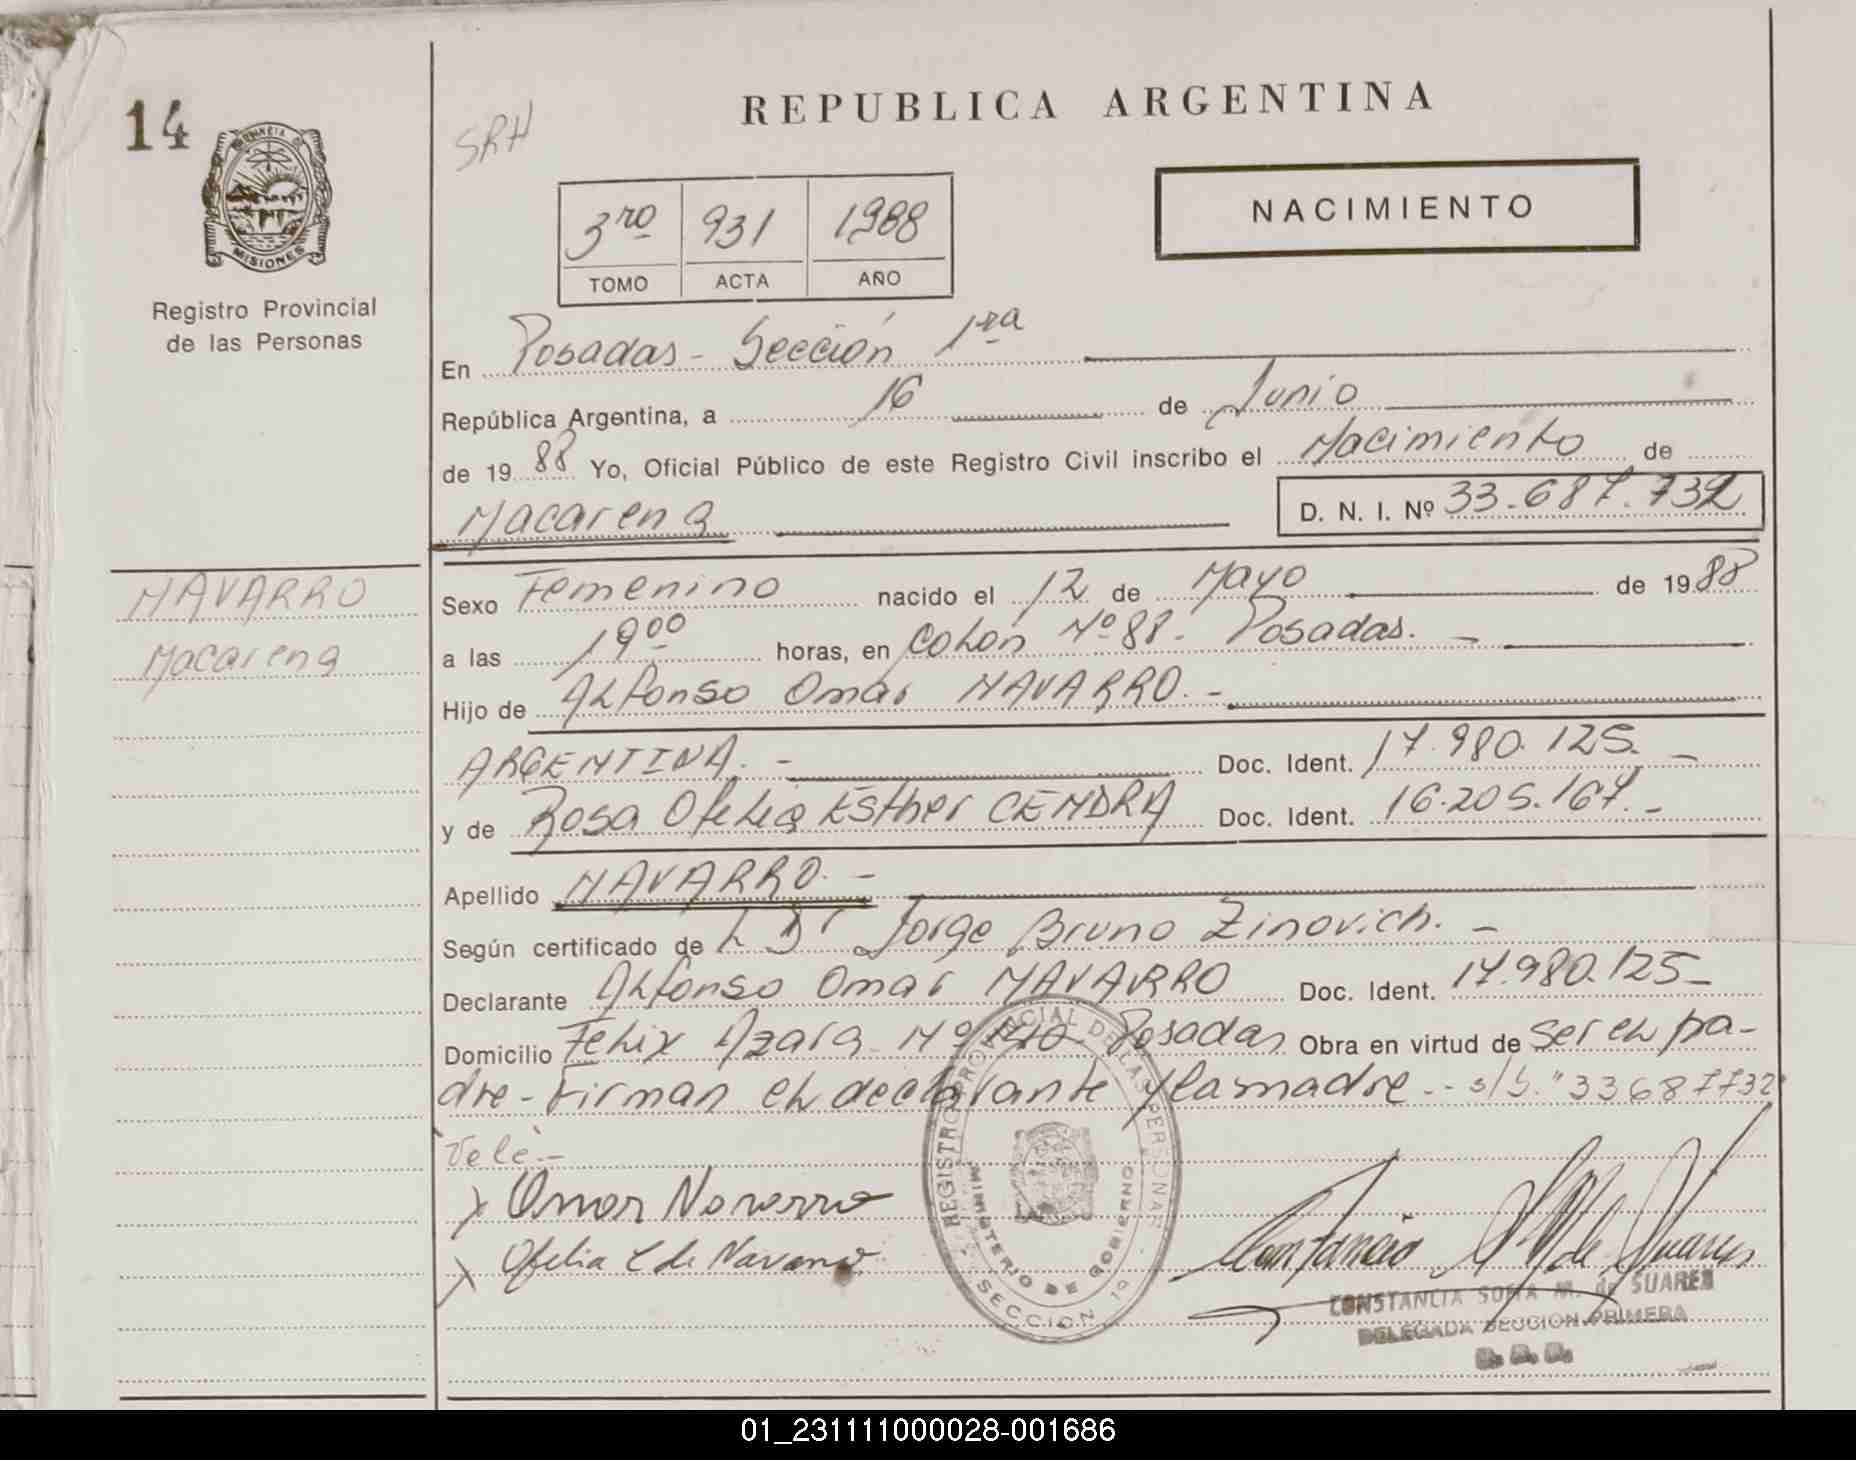 14
PROVINCIA DE
MISIONES
Registro Provincial
de las Personas
SRH
REPUBLICA ARGENTINA
NACIMIENTO
3ro 931 1988
TOMO ACTA AÑO
En Posadas - Sección 1ra
República Argentina, a 16 de Junio
de 1988 Yo, Oficial Público de este Registro Civil inscribo el Nacimiento de
Macarena D. N. I. Nº 33.687.732
NAVARRO
Macarena
Sexo Femenino nacido el 12 de Mayo de 1988
a las 19 00 horas, en Colon Nº 88. Posadas. -
Hijo de Alfonso Omar NAVARRO. -
ARGENTINA. - Doc. Ident. 17.980.125. -
y de Rosa Ofelia Esther CENDRA Doc. Ident. 16.205.167. -
Apellido NAVARRO. -
Según certificado de L Dr Jorge Bruno Zinovich. -
Declarante Alfonso Omar NAVARRO Doc. Ident. 17.980.125 -
Domicilio Felix Azara Nº Posadas Obra en virtud de ser el pa-
dre - Firman el declarante y la madre - - s/b. "33687732"
Vale. -
x Omar Navarro
x Ofelia C de Navarro
REGISTRO PROVINCIAL DE LAS PERSONAS
MINISTERIO DE GOBIERNO
SECCION 1º
Constancia S M de Suarez
CONSTANCIA SOFIA M. de SUAREZ
DELEGADA SECCION PRIMERA
01_231111000028-001686